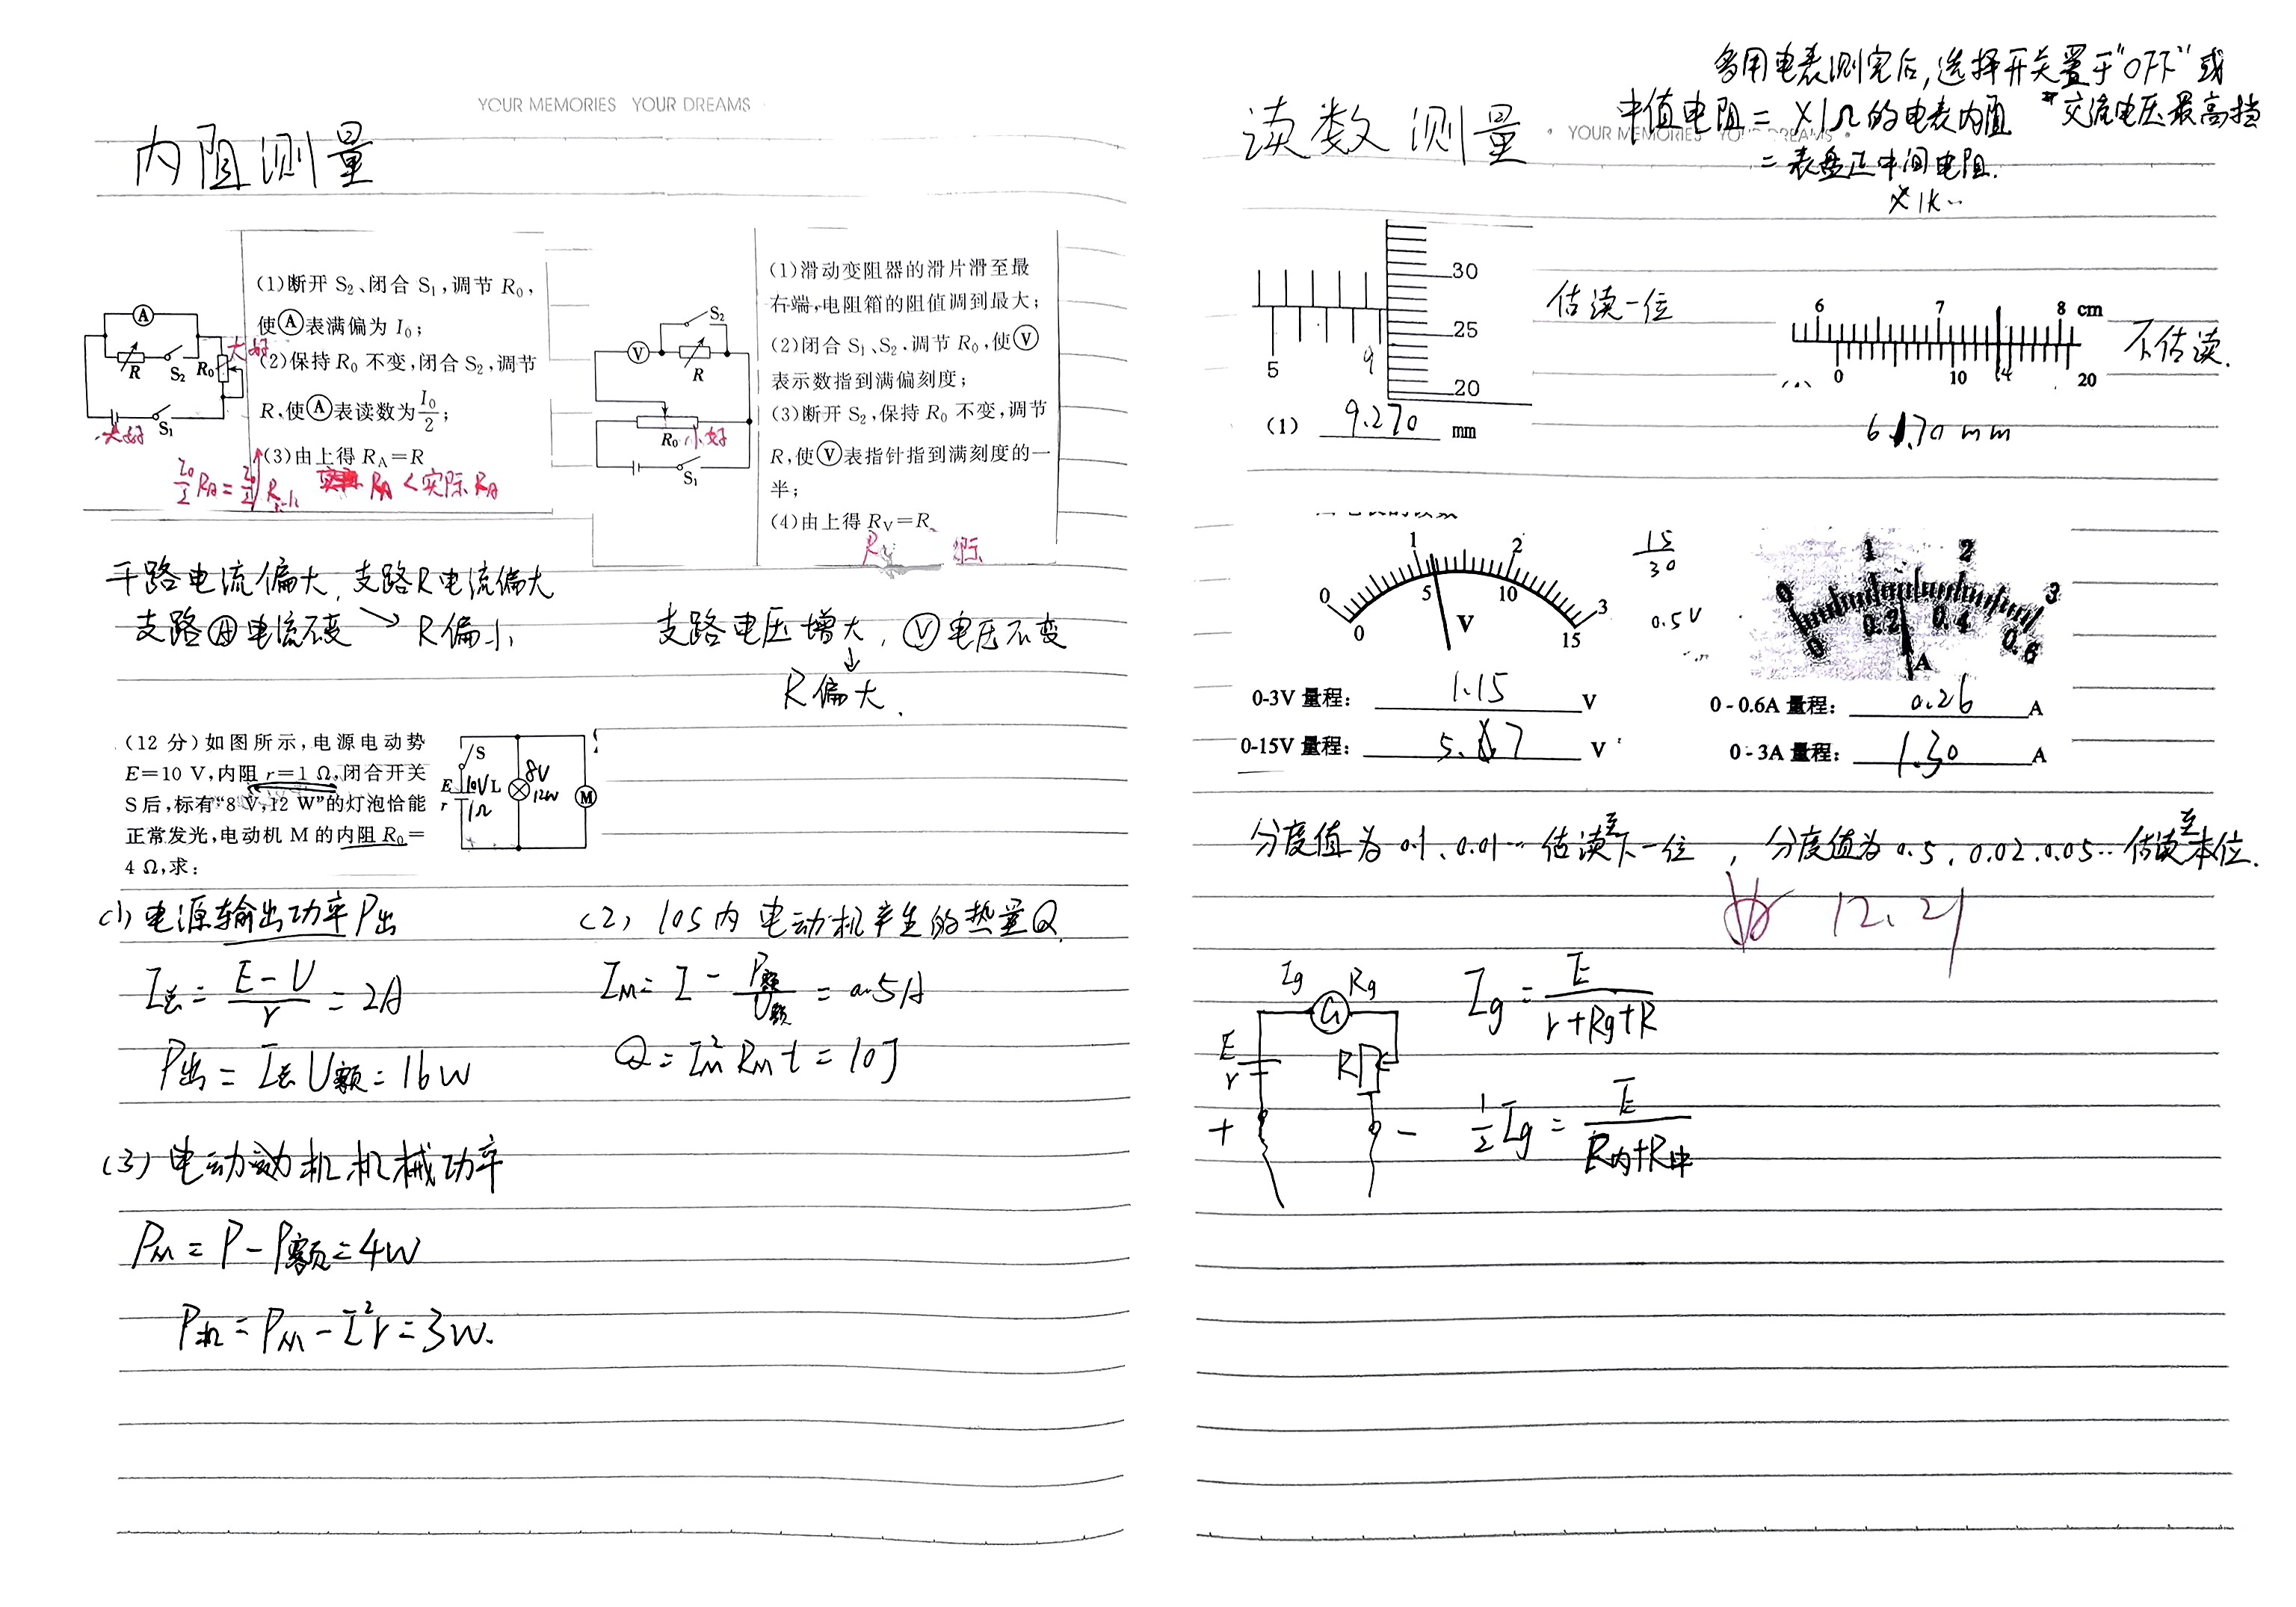 YOUR MEMORIES YOUR DREAMS
内阻测量
(1)断开 S₂、闭合 S₁,调节 R₀,
使Ⓐ表满偏为 I₀;
(2)保持 R₀ 不变,闭合 S₂,调节
R,使Ⓐ表读数为I₀/2;
(3)由上得 R_A=R
A
R
S₂
R₀
S₁
大好
大好
R_A < 实际 R_A
(1)滑动变阻器的滑片滑至最
右端,电阻箱的阻值调到最大;
(2)闭合 S₁、S₂,调节 R₀,使Ⓥ
表示数指到满偏刻度;
(3)断开 S₂,保持 R₀ 不变,调节
R,使Ⓥ表指针指到满刻度的一
半;
(4)由上得 R_V=R
S₂
V
R
R₀ 小好
S₁
干路电流偏大,支路R电流偏大
支路Ⓐ电流不变 ↘ R偏小
支路电压增大,Ⓥ电压不变
↓
R偏大.
(12 分)如图所示,电源电动势
E=10 V,内阻 r=1 Ω,闭合开关
S后,标有“8 V,12 W”的灯泡恰能
正常发光,电动机 M 的内阻 R₀=
4 Ω,求:
S
E 10V L 8V
r 1Ω 12W M
(1) 电源输出功率P出
I总 = (E-U)/r = 2A
P出 = I总U额 = 16W
(2) 10S内电动机产生的热量Q
I_M = I - P额/U额 = 0.5A
Q = I_M²R_M t = 10J
(3) 电动机机械功率
P_M = P-P额 = 4W
P机 = P_M - I²r = 3W.
多用电表测完后,选择开关置于"OFF"或
交流电压最高挡
读数测量
YOUR MEMORIES YOUR DREAMS
中值电阻 = ×1Ω的电表内阻
= 表盘正中间电阻.
×1k..
30
25
20
5 9
(1) 9.270 mm
估读一位
6 7 8 cm
0 10 14 20
不估读.
0 1 2 3
0 5 10 15
V
15/30
0.5V
0 1 2 3
0 0.2 0.4 0.6
A
0-3V 量程: 1.15 V
0-15V 量程: V
0-0.6A 量程: 0.26 A
0-3A 量程: 1.30 A
分度值为0.1、0.01… 估读至下一位 , 分度值为0.5,0.02,0.05… 估读至本位.
12.21
Ig Rg
G
E
r
R
+ -
Ig = E/(r+Rg+R)
1/2 Ig = E/(R内+R中)